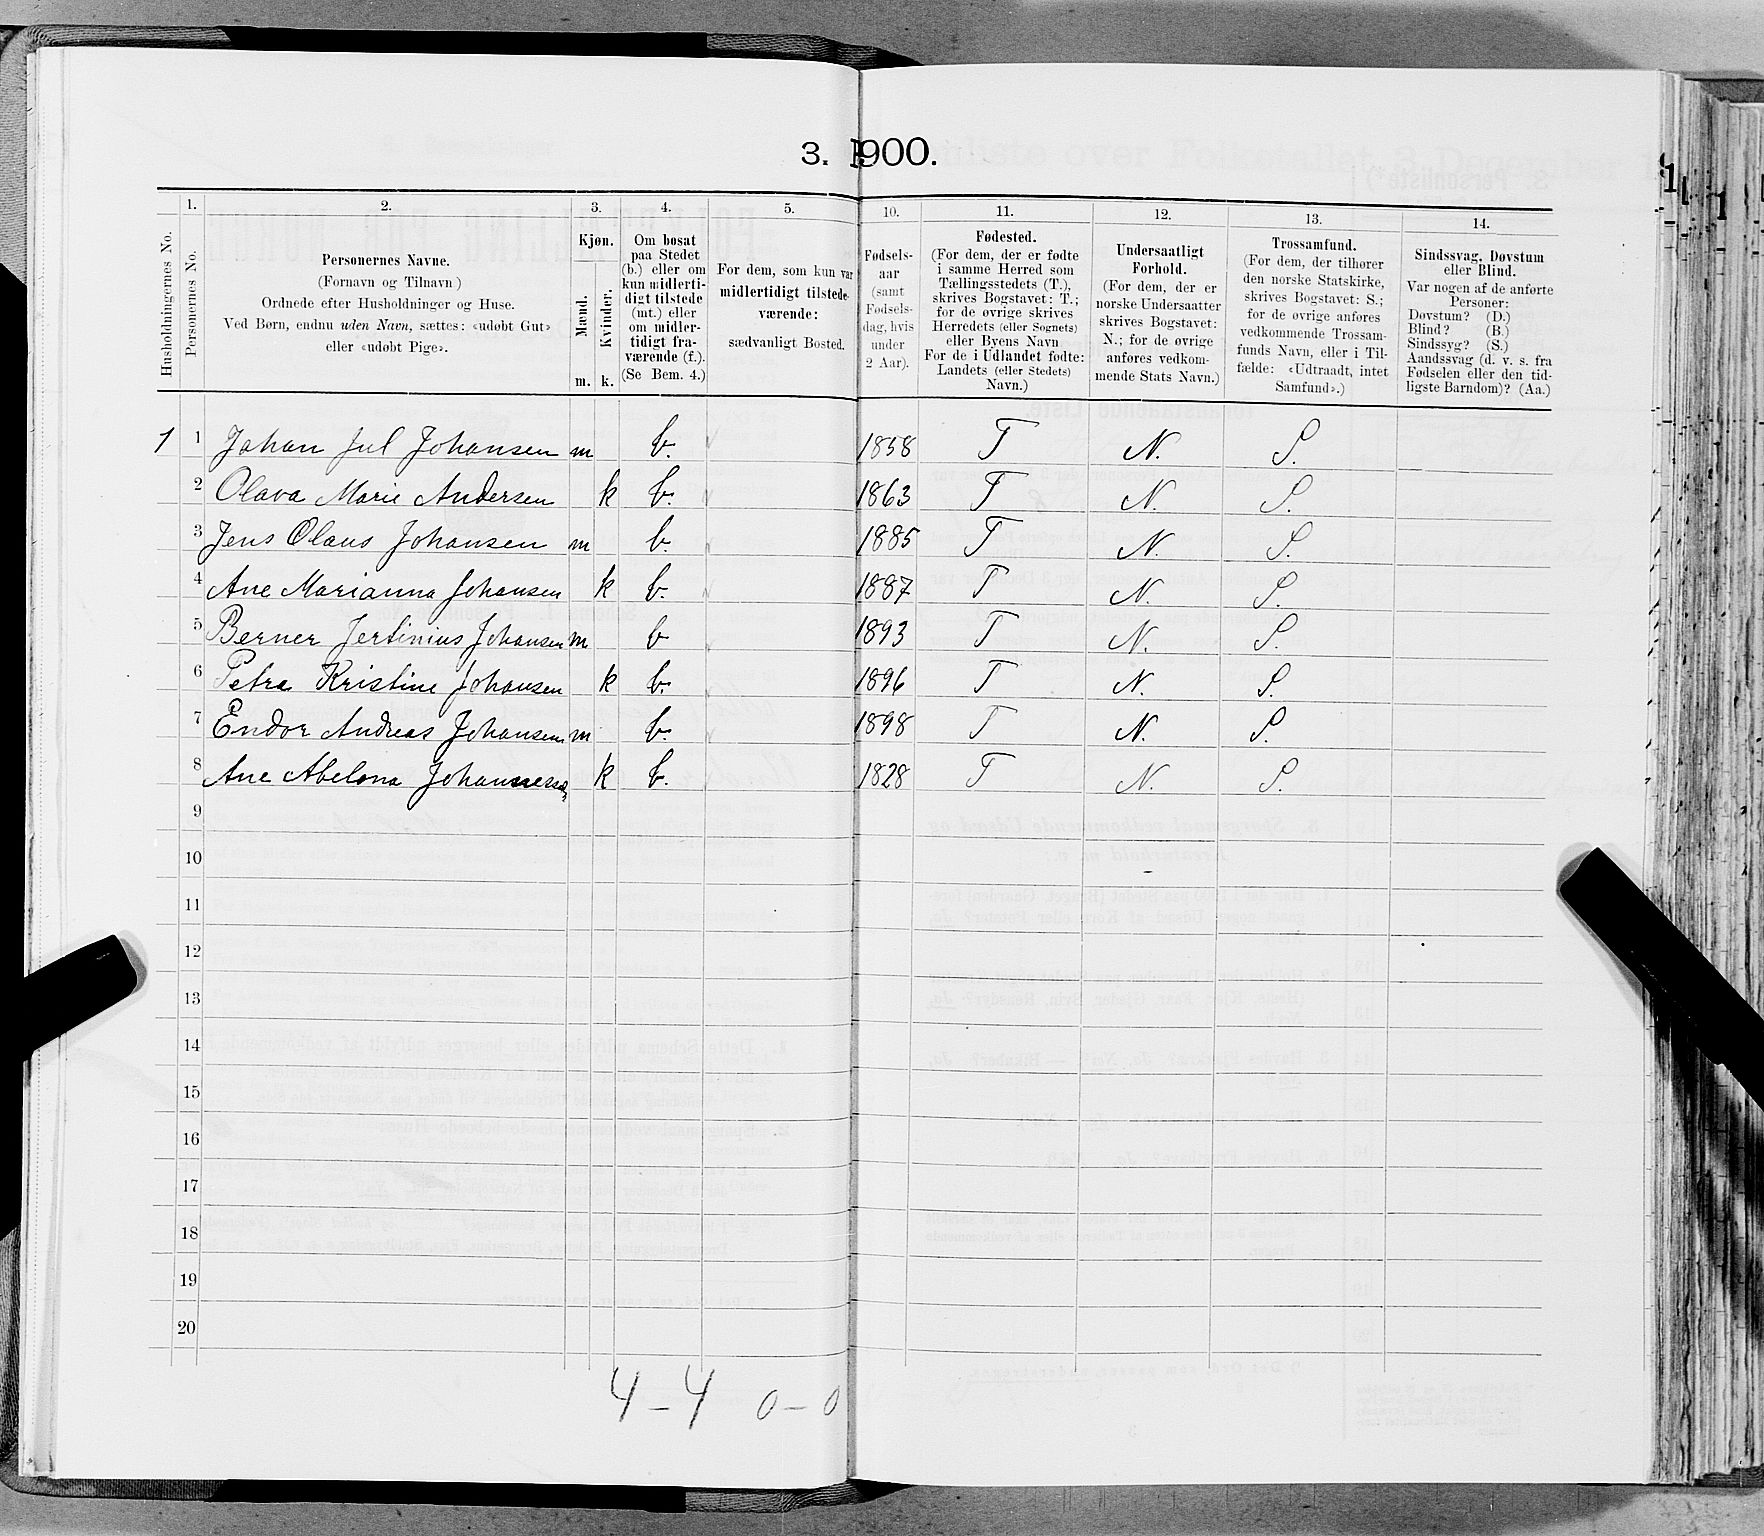 3. 1900.
1.
2.
3.
4.
5.
10.
11.
12.
13.
14.
Husholdningernes No.
Personernes No.
Personernes Navne.
(Fornavn og Tilnavn)
Ordnede efter Husholdninger og Huse.
Ved Børn, endnu uden Navn, sættes: «udøbt Gut»
eller «udøbt Pige».
Kjøn.
Mænd.
Kvinder.
m. k.
Om bosat
paa Stedet
(b.) eller om
kun midlerti-
digt tilstede
(mt.) eller
om midler-
tidigt fra-
værende (f.).
(Se Bem. 4.)
For dem, som kun var
midlertidigt tilstede-
værende:
sædvanligt Bosted.
Fødsels-
aar
(samt
Fødsels-
dag, hvis
under
2 Aar).
Fødested.
(For dem, der er fødte
i samme Herred som
Tællingsstedets (T.),
skrives Bogstavet: T.;
for de øvrige skrives
Herredets (eller Sognets)
eller Byens Navn
For de i Udlandet fødte:
Landets (eller Stedets)
Navn.)
Undersaatligt
Forhold.
(For dem, der er
norske Undersaatter
skrives Bogstavet:
N.; for de øvrige
anføres vedkom-
mende Stats Navn.)
Trossamfund.
(For dem, der tilhører
den norske Statskirke,
skrives Bogstavet: S.;
for de øvrige anføres
vedkommende Trossam-
funds Navn, eller i Til-
fælde: «Udtraadt, intet
Samfund».)
Sindssvag, Døvstum
eller Blind.
Var nogen af de anførte
Personer:
Døvstum? (D.)
Blind? (B.)
Sindssyg? (S.)
Aandssvag (d. v. s. fra
Fødselen eller den tid-
ligste Barndom)? (Aa.)
1 1 Johan Jul Johansen m b. 1858 T N. S.
2 Olava Marie Andersen k b. 1863 T N. S.
3 Jens Olaus Johansen m b. 1885 T N. S.
4 Ane Marianna Johansen k b. 1887 T N. S.
5 Berner Jertinius Johansen m b 1893 T N. S.
6 Petra Kristine Johansen k b. 1896 T N. S.
7 Endor Andreas Johansen m b. 1898 T N. S.
8 Ane Abelona k b. 1828 T N. S.
9
10
11
12
13
14
15
16
17
18
19
20
4 – 4 0 – 0